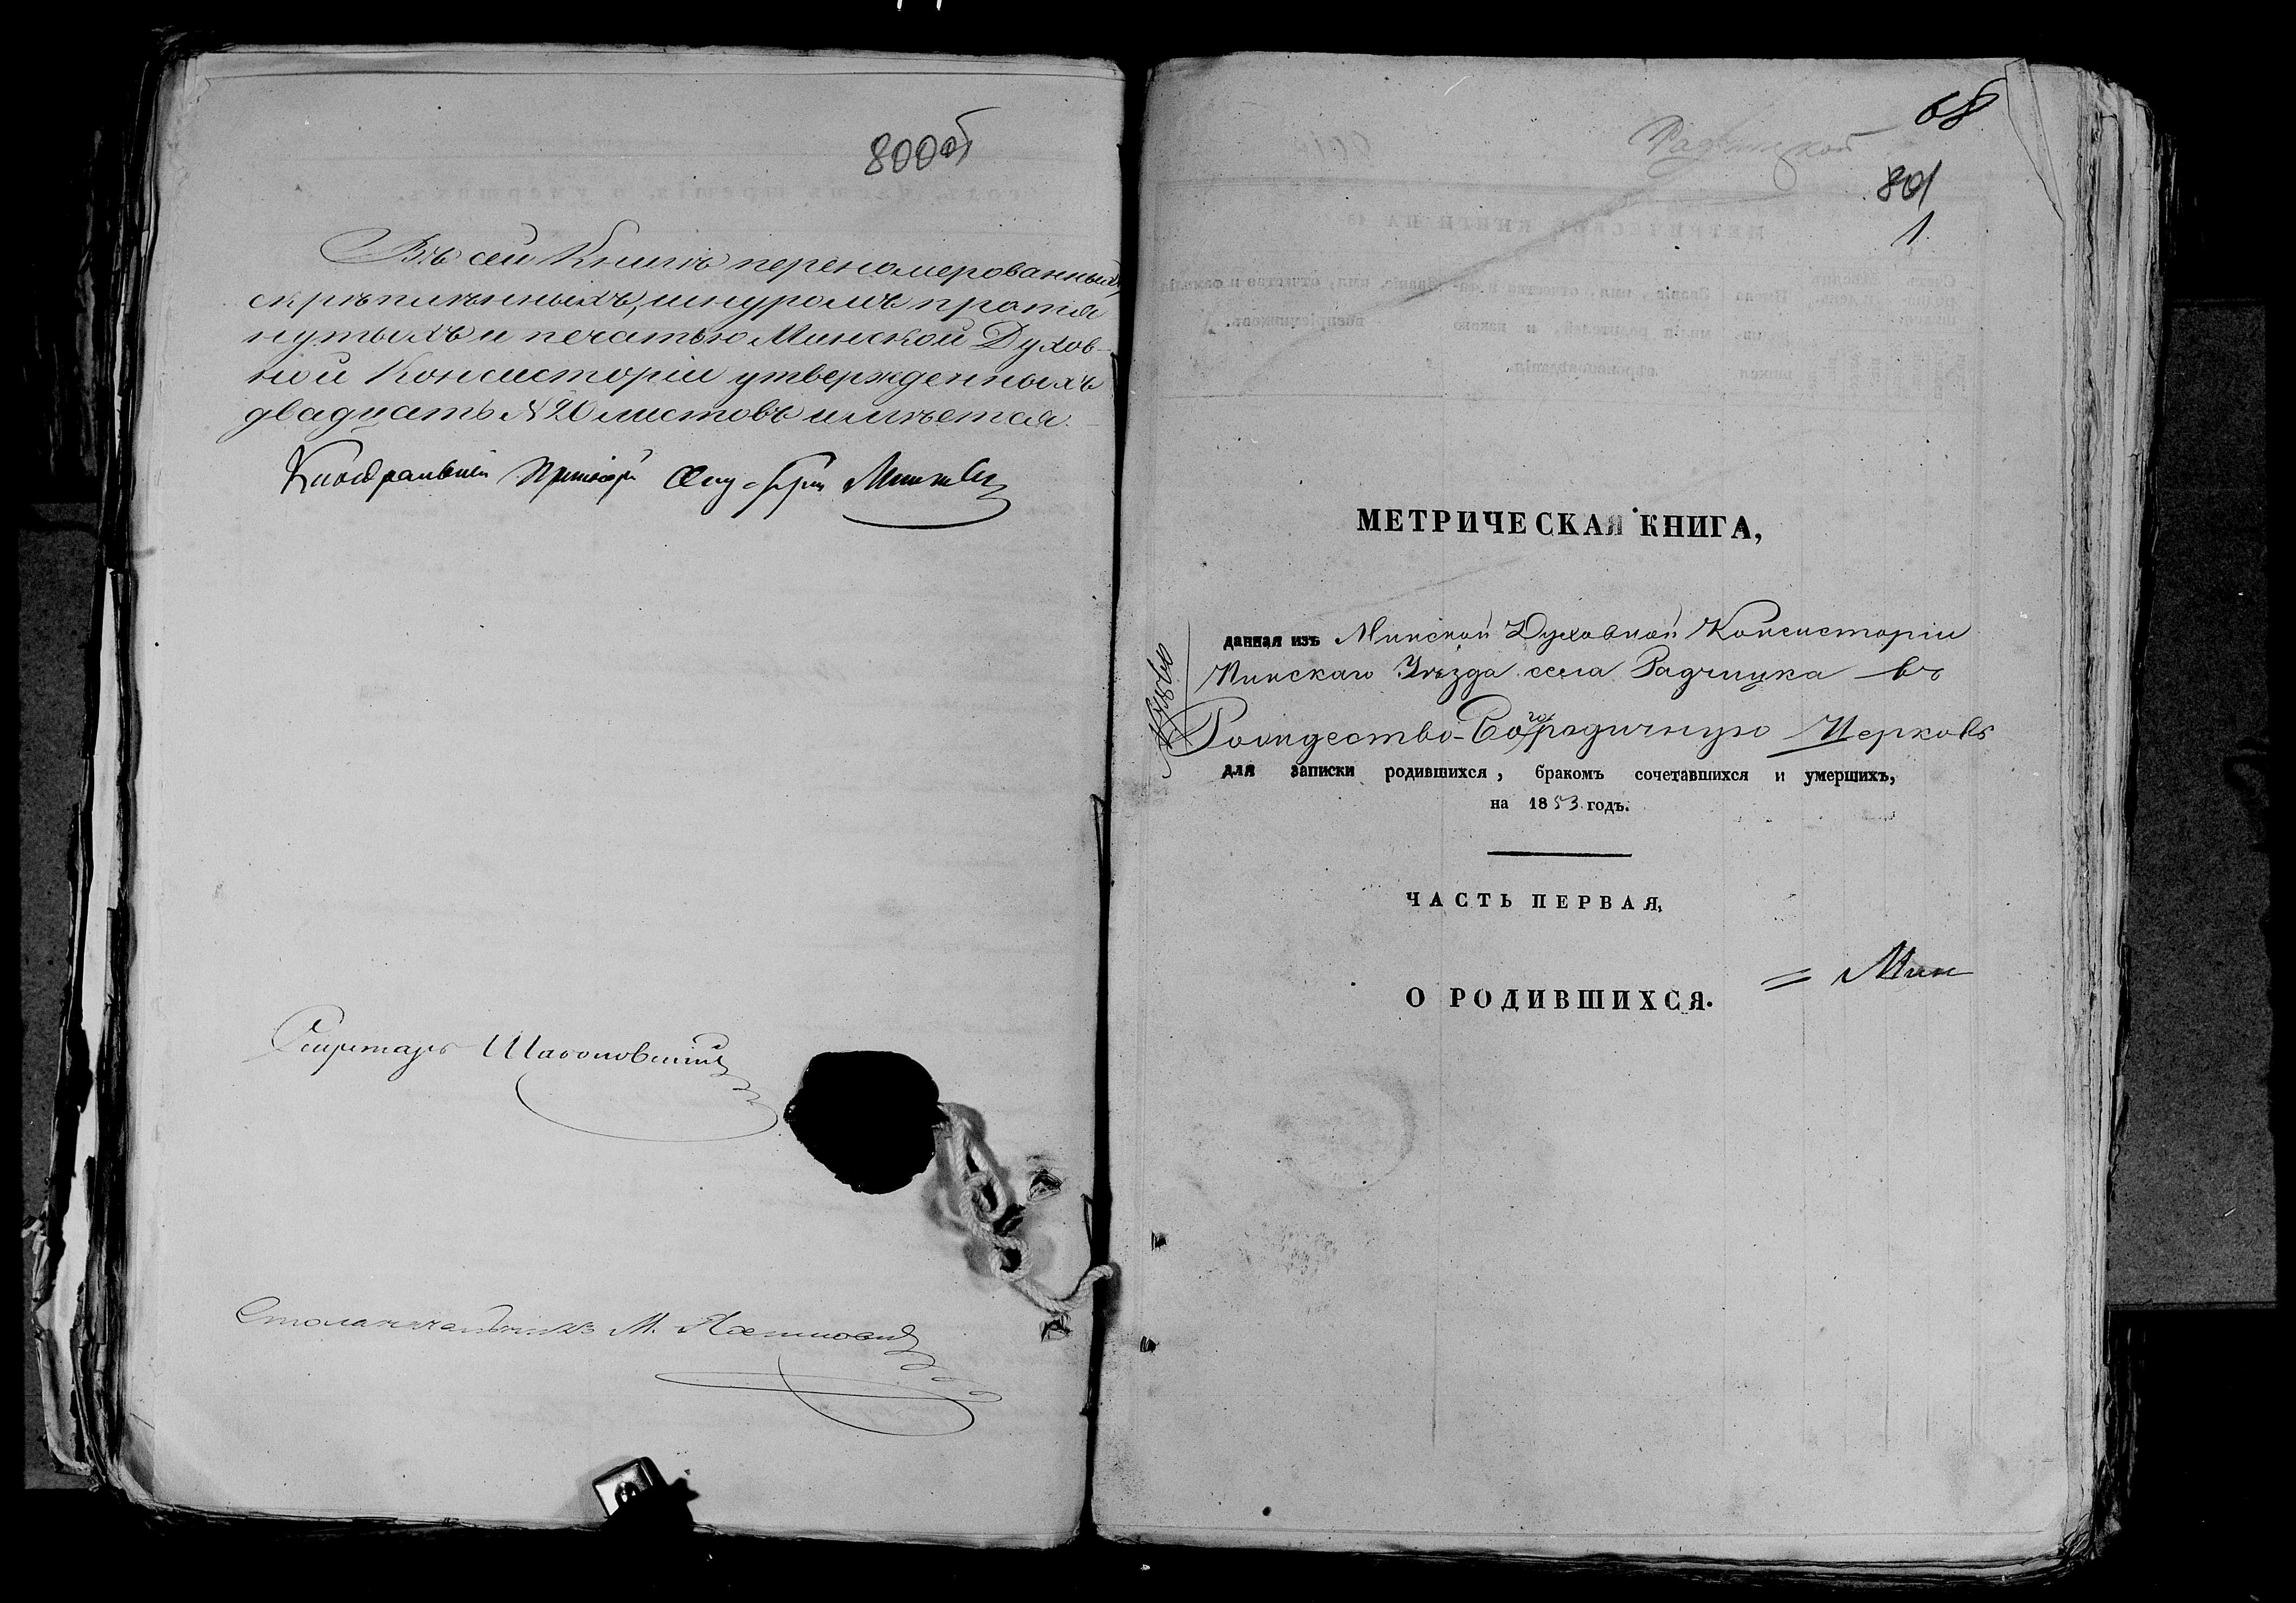 800об
Въ сей Книгѣ перенумерованныхъ,
скрѣпленныхъ, шнуромъ протя
нутыхъ и печатью Минской Духов-
ной Консисторіи утвержденныхъ
двадцать № 20 листовъ имѣется.
Каѳедральный
Секретарь
Столоначальникъ М.
68
Радчицкой
801
1
МЕТРИЧЕСКАЯ КНИГА,
данная изъ Минской Духовной Консисторіи
Пинскаго Уѣзда села Радчицка въ
Рождество-Богородичную Церковь
для записки родившихся, бракомъ сочетавшихся и умершихъ,
на 1853 годъ.
ЧАСТЬ ПЕРВАЯ,
О РОДИВШИХСЯ.
= Мин